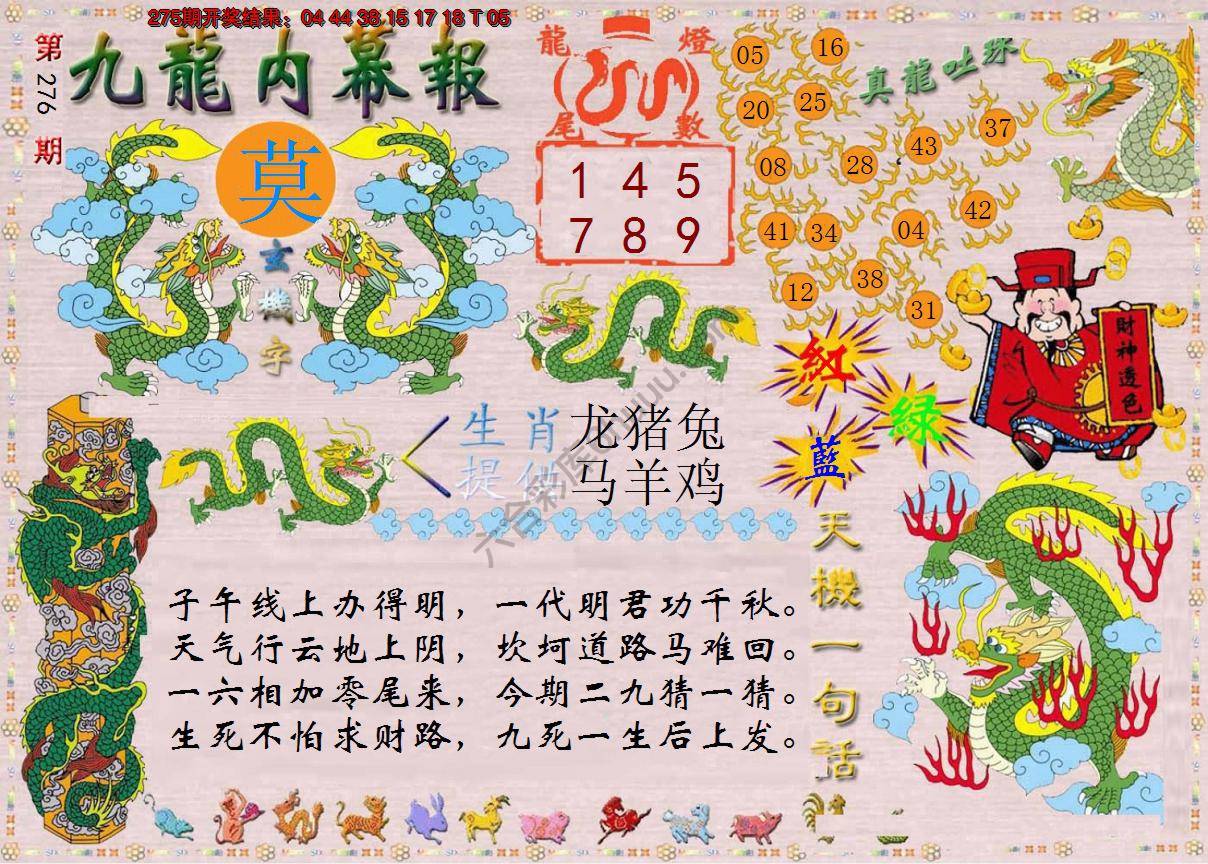 275期开奖结果：04 44 38 15 17 18 T 05
第276期
九龍内幕報
莫
玄機字
龍燈
尾數
1 4 5
7 8 9
真龍吐珠
05 16
20 25
43 37
08 28
42
41 34 04
38
12 31
財神透色
紅
綠
藍
生肖 龙猪兔
提供 马羊鸡
天機一句話
子午线上办得明，一代明君功千秋。
天气行云地上阴，坎坷道路马难回。
一六相加零尾来，今期二九猜一猜。
生死不怕求财路，九死一生后上发。